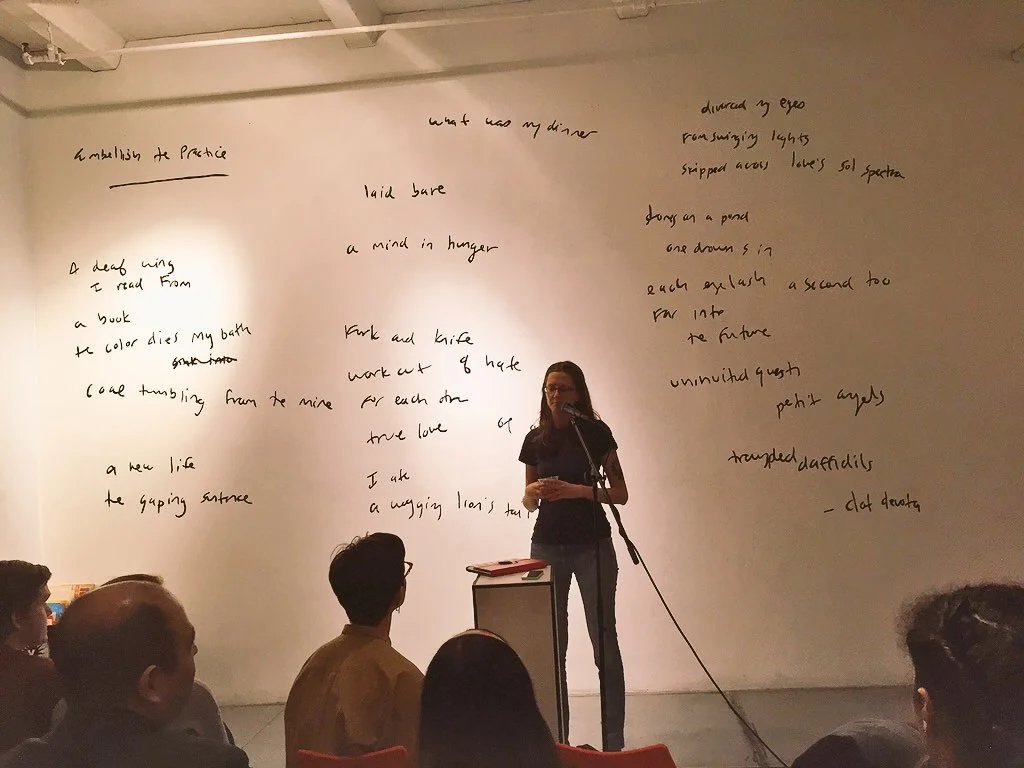 Embellish te Practice
A deaf wing
I read From
a book
te color dies my bath
sink into
Coal tumbling from te mine
a new life
te gaping sentence
what was my dinner
laid bare
a mind in hunger
Fork and knife
work out of hate
For each other
true love of
I ate
a wagging lion's tail
divorced my eyes
From swinging lights
skipped across love's sol spectra
dong on a pond
one drowns in
each eyelash a second too
Far into
te Future
uninvited guests
petit angels
trampled daffidils